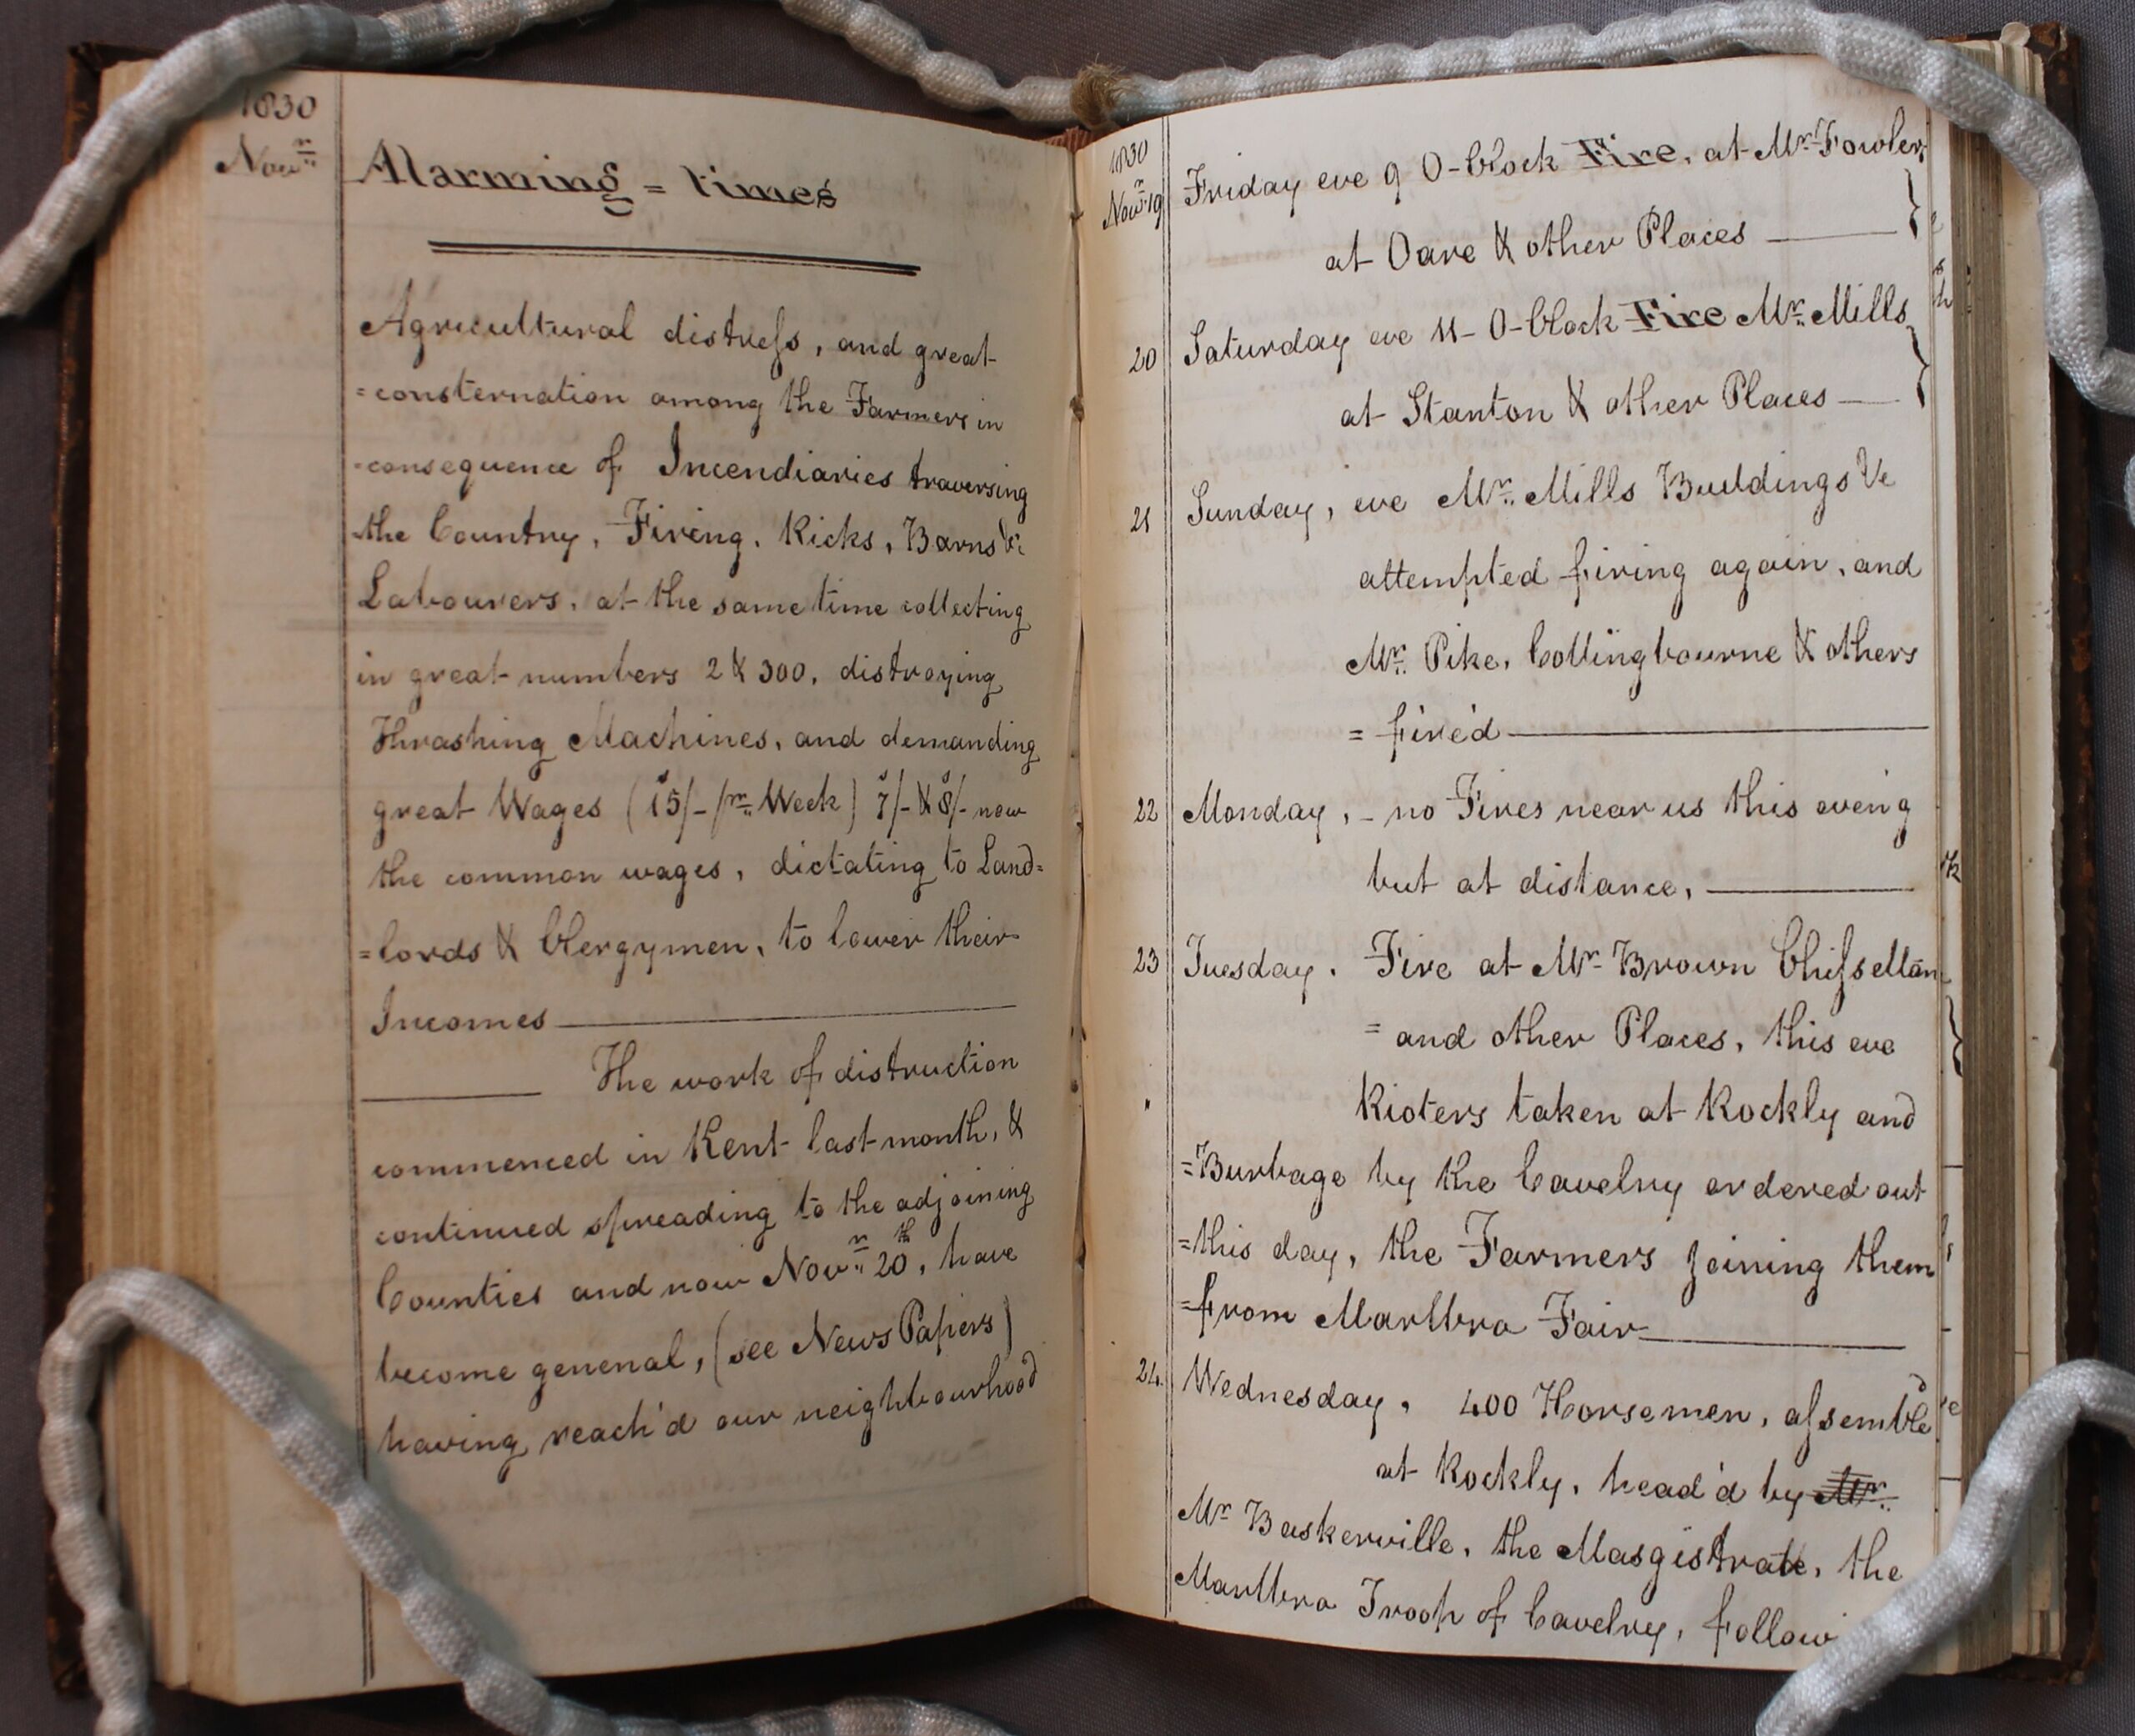 1830
Novr.
Alarming = times
Agricultural distress, and great
=consternation among the Farmers in
=consequence of Incendiaries traversing
the Country, Fireing, Ricks, Barns &c
Labourers, at the same time collecting
in great numbers 2 & 300, distroying
Thrashing Machines, and demanding
great Wages (15s/- pr. Week) 7s/- & 8s/- now
the common wages, dictating to Land=
=lords & Clergymen, to lower their
Incomes
The work of distruction
commenced in Kent last month, &
continued spreading to the adjoining
Counties and now Novr. 20th, have
become general, (see News Papers)
having reach'd our neighbourhood
1830
Novr. 19 Friday eve 9 O-Clock Fire, at Mr. Fowlers
at Oare & other Places
20 Saturday eve 11- O-Clock Fire Mr. Mills
at Stanton & other Places
21 Sunday, eve Mr. Mills Buildings &c
attempted firing again, and
Mr. Pike, Collingbourne & others
= fire'd
22 Monday, - no Fires near us this even'g
but at distance,
23 Tuesday. Fire at Mr Brown Chisselton
= and other Places, this eve
Rioters taken at Rockly and
=Burbage by the Cavelry ordered out
=this day, the Farmers joining them
=from Marlbro Fair
24. Wednesday, 400 Horsemen, assembled
at Rockly, head'd by Mr.
Mr Baskerville, the Masgistrate, the
Marlbro Troop of Cavelry, follow